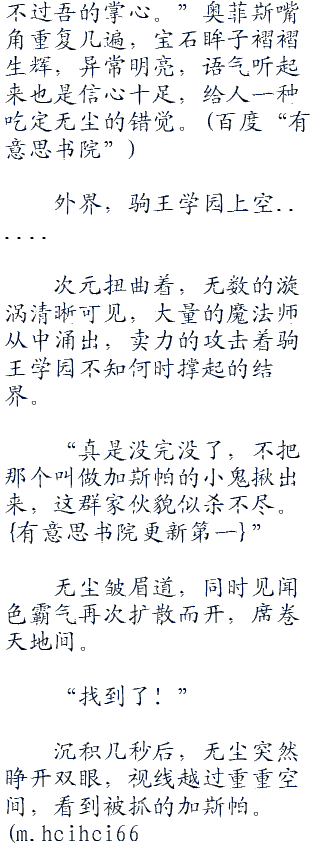 不过吾的掌心。”奥菲斯嘴
角重复几遍，宝石眸子褶褶
生辉，异常明亮，语气听起
来也是信心十足，给人一种
吃定无尘的错觉。(百度“有
意思书院”)
外界，驹王学园上空..
....
次元扭曲着，无数的漩
涡清晰可见，大量的魔法师
从中涌出，卖力的攻击着驹
王学园不知何时撑起的结
界。
“真是没完没了，不把
那个叫做加斯帕的小鬼揪出
来，这群家伙貌似杀不尽。
{有意思书院更新第一}”
无尘皱眉道，同时见闻
色霸气再次扩散而开，席卷
天地间。
“找到了！”
沉积几秒后，无尘突然
睁开双眼，视线越过重重空
间，看到被抓的加斯帕。
(m.hcihci66